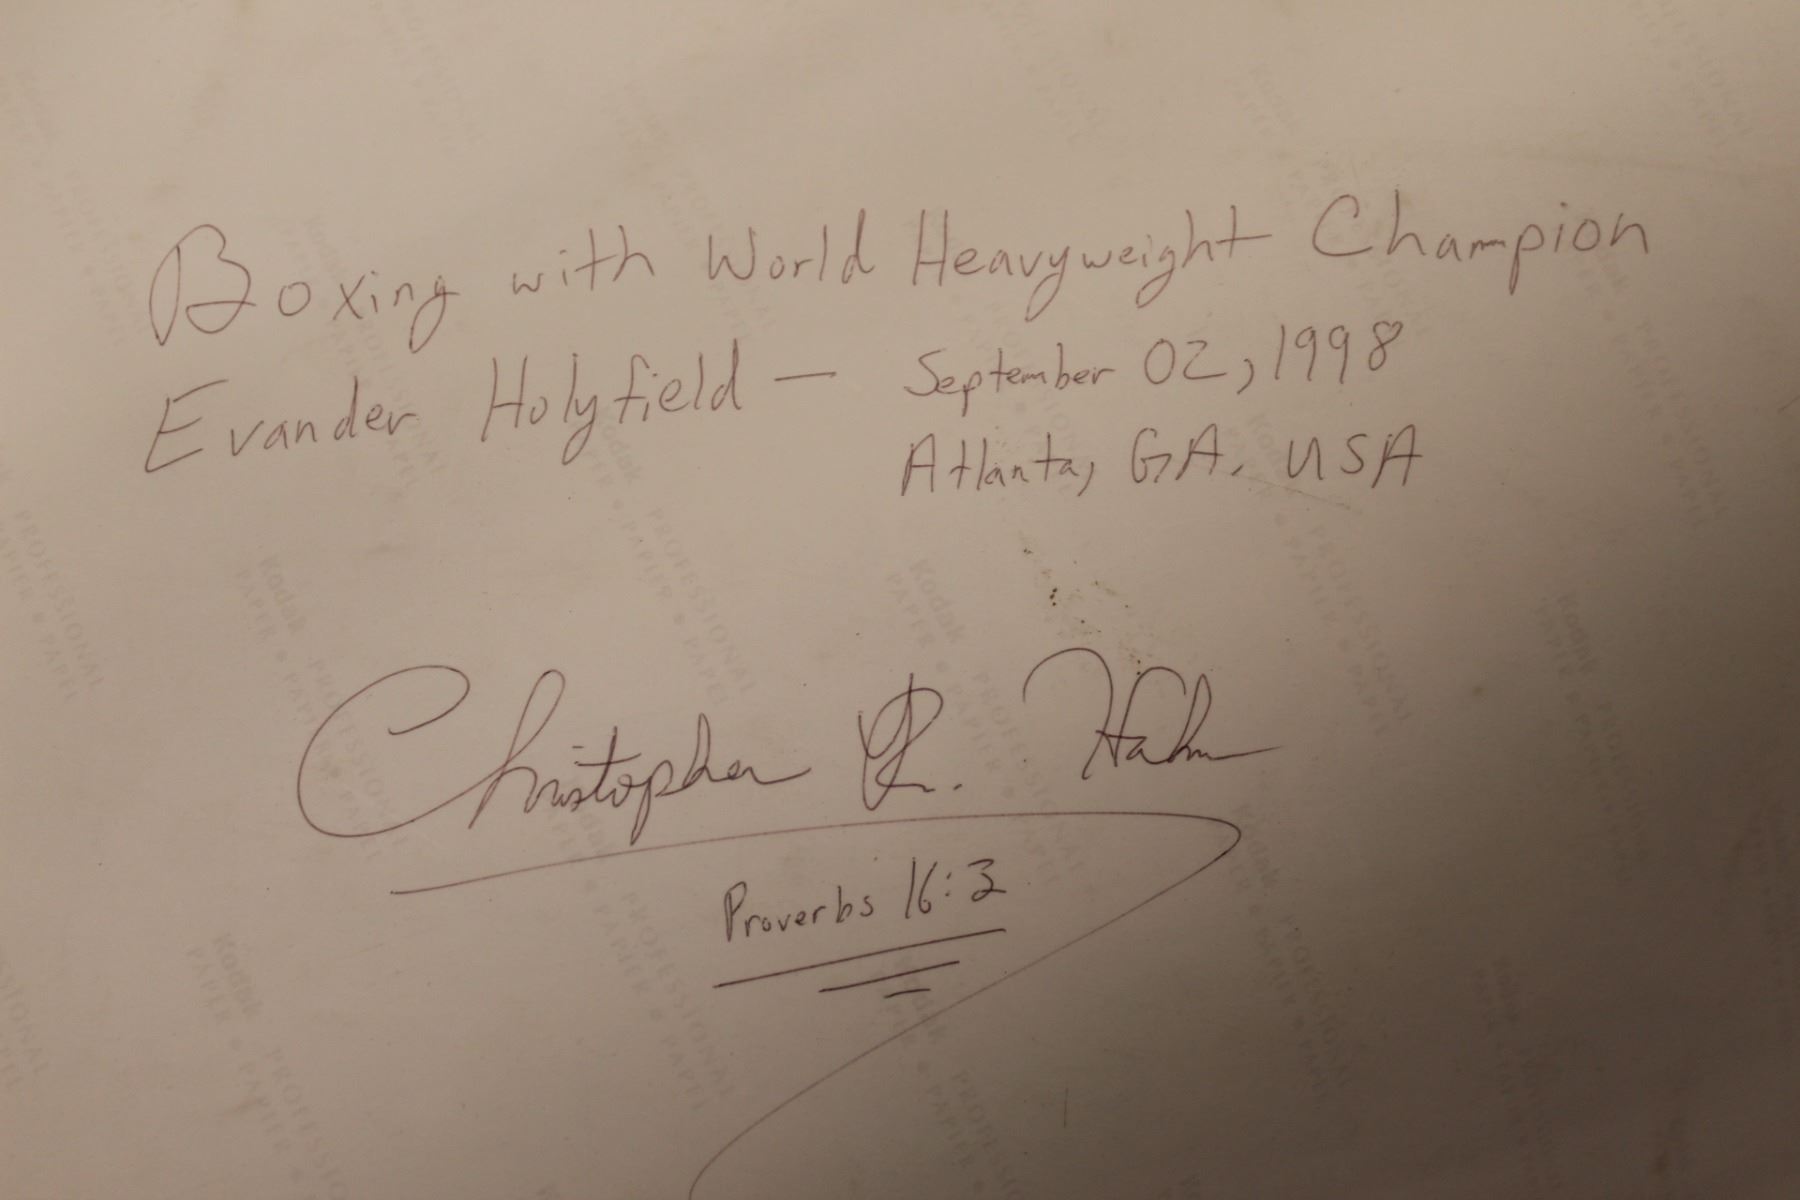 Boxing with World Heavyweight Champion
Evander Holyfield — September 02, 1998
Atlanta, GA. USA
Christopher R. Hahn
Proverbs 16:3
Kodak
PROFESSIONAL
PAPIER • PAPEL